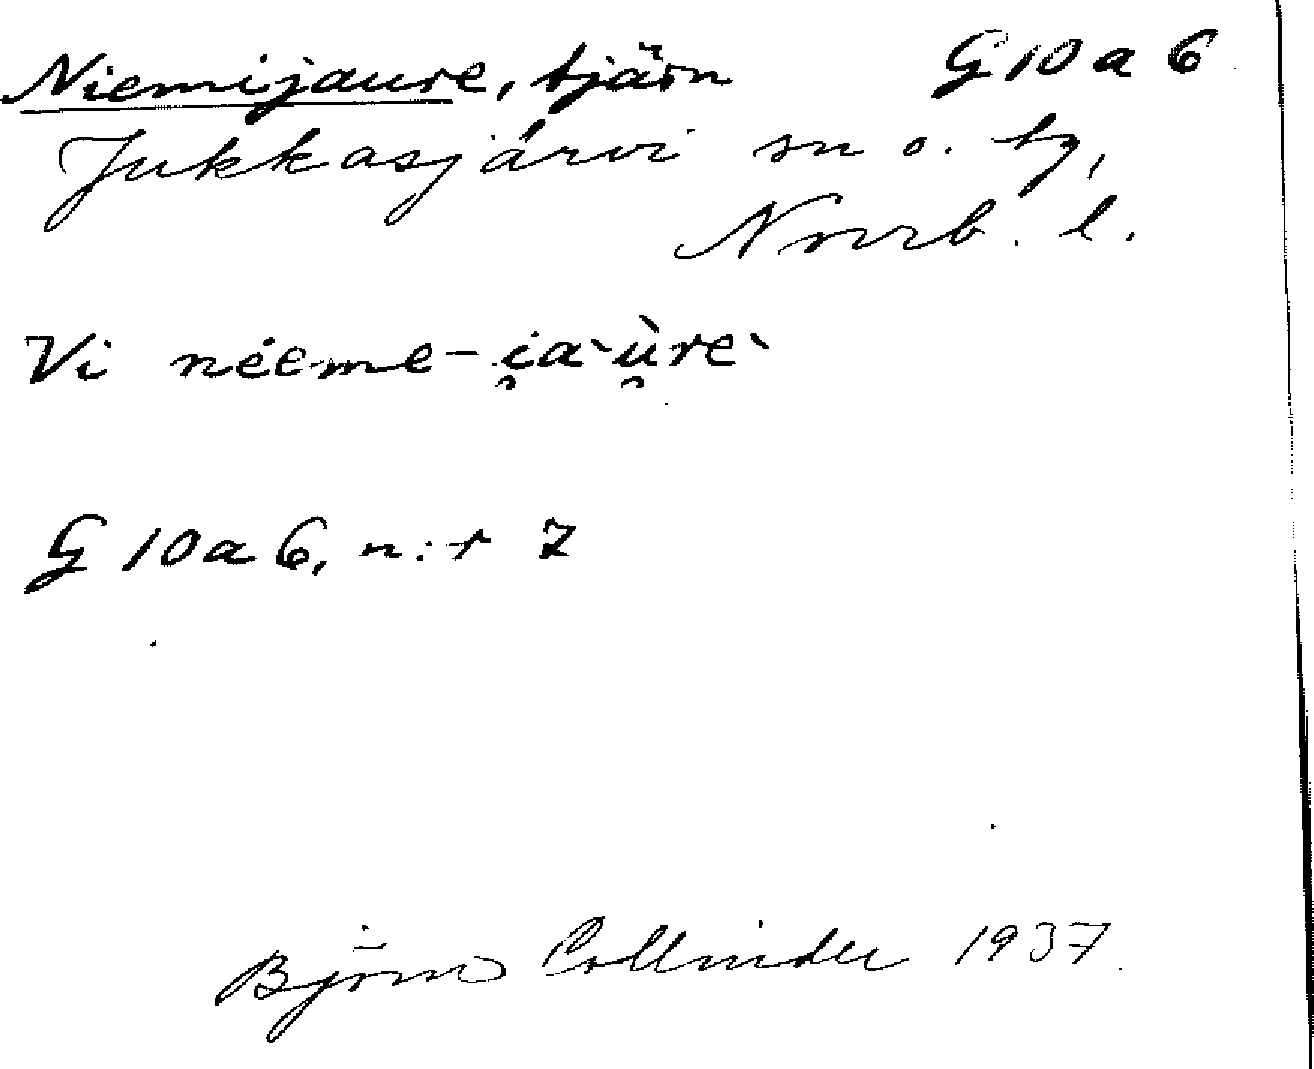 Niemijaure, tjärn G 10 a 6
Jukkasjärvi sn o. tg,
Norrb. l.
Vi néeme-i̯a`u̯̇̀re`
G 10 a 6, n:r 7
Björn Collinder 1937.